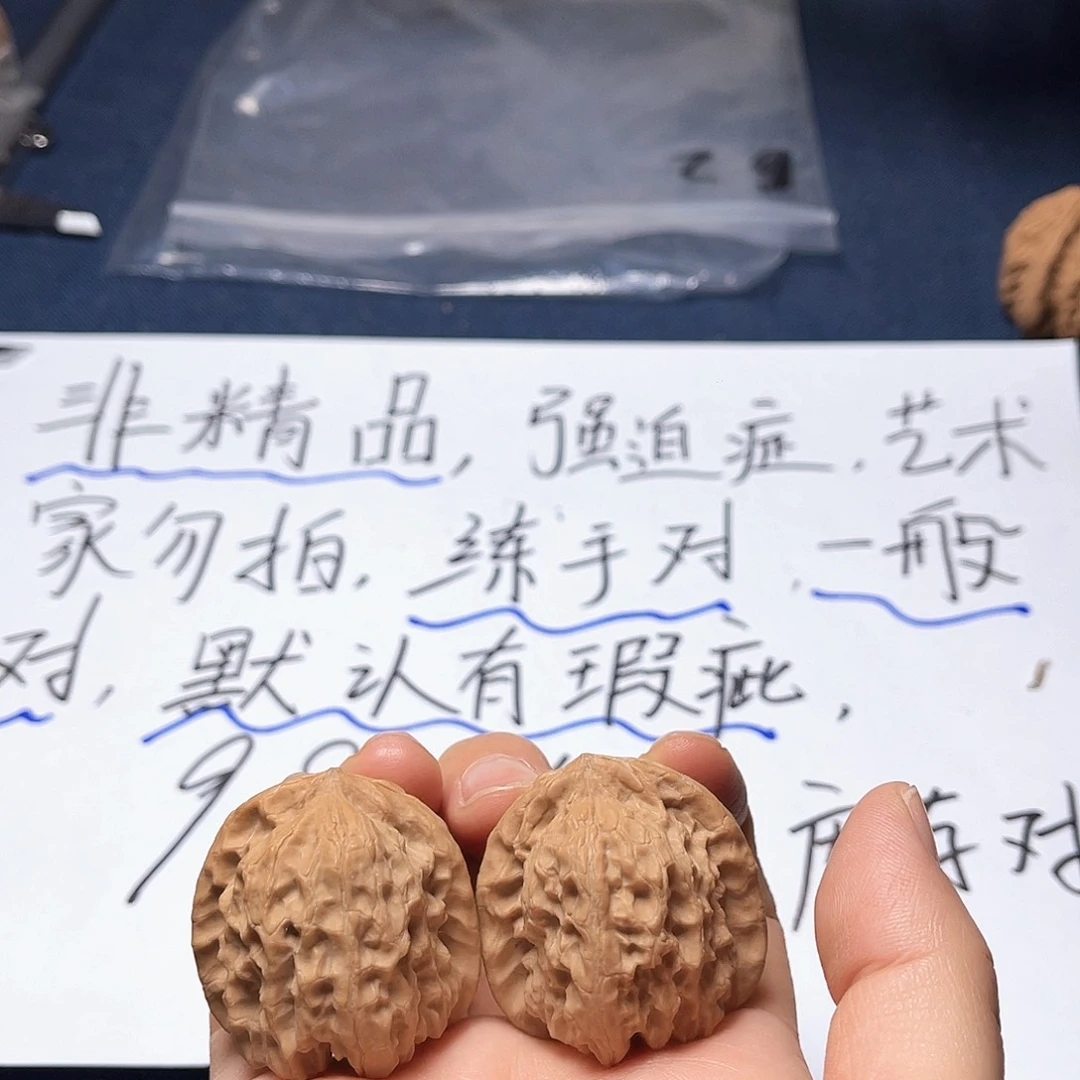 非精品,强迫症,艺术
家勿拍,练手对,一般
对,默认有瑕疵,
库存对